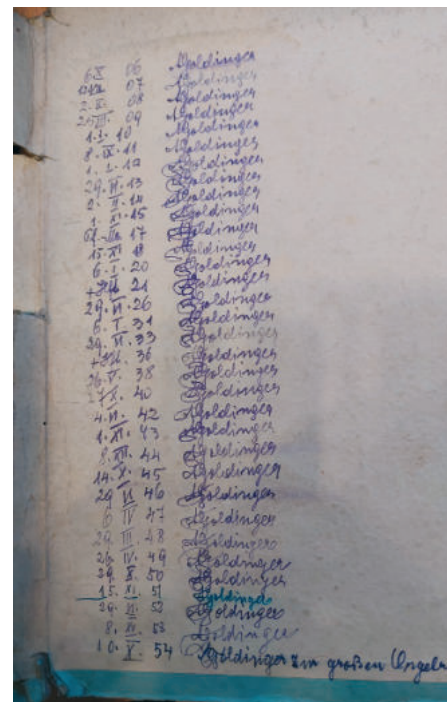 6. X 06 Goldinger
07 Goldinger
2. 08 Goldinger
25 III. 09 Goldinger
1. I. 10 Goldinger
8. IX. 11 Goldinger
1. I. 12 Goldinger
29. VI. 13 Goldinger
2. II. 14 Goldinger
1. XI. 15 Goldinger
17 Goldinger
15. XI Goldinger
6. I. 20 Goldinger
21 Goldinger
29. VI. 26 Goldinger
6. I 31 Goldinger
29. VI. 33 Goldinger
36 Goldinger
26. V. 38 Goldinger
7 X. 40 Goldinger
4. 42 Goldinger
1. XI. 43 Goldinger
8. XII. 44 Goldinger
14. X. 45 Goldinger
29 VI 46 Goldinger
6 IV 47 Goldinger
29 III 48 Goldinger
26. IV. 49 Goldinger
29. X. 50 Goldinger
15. XI. 51 Goldinger
29. VI. 53 Goldinger
8. 53 Goldinger
10. X. 54 Goldinger zur großen Orgel